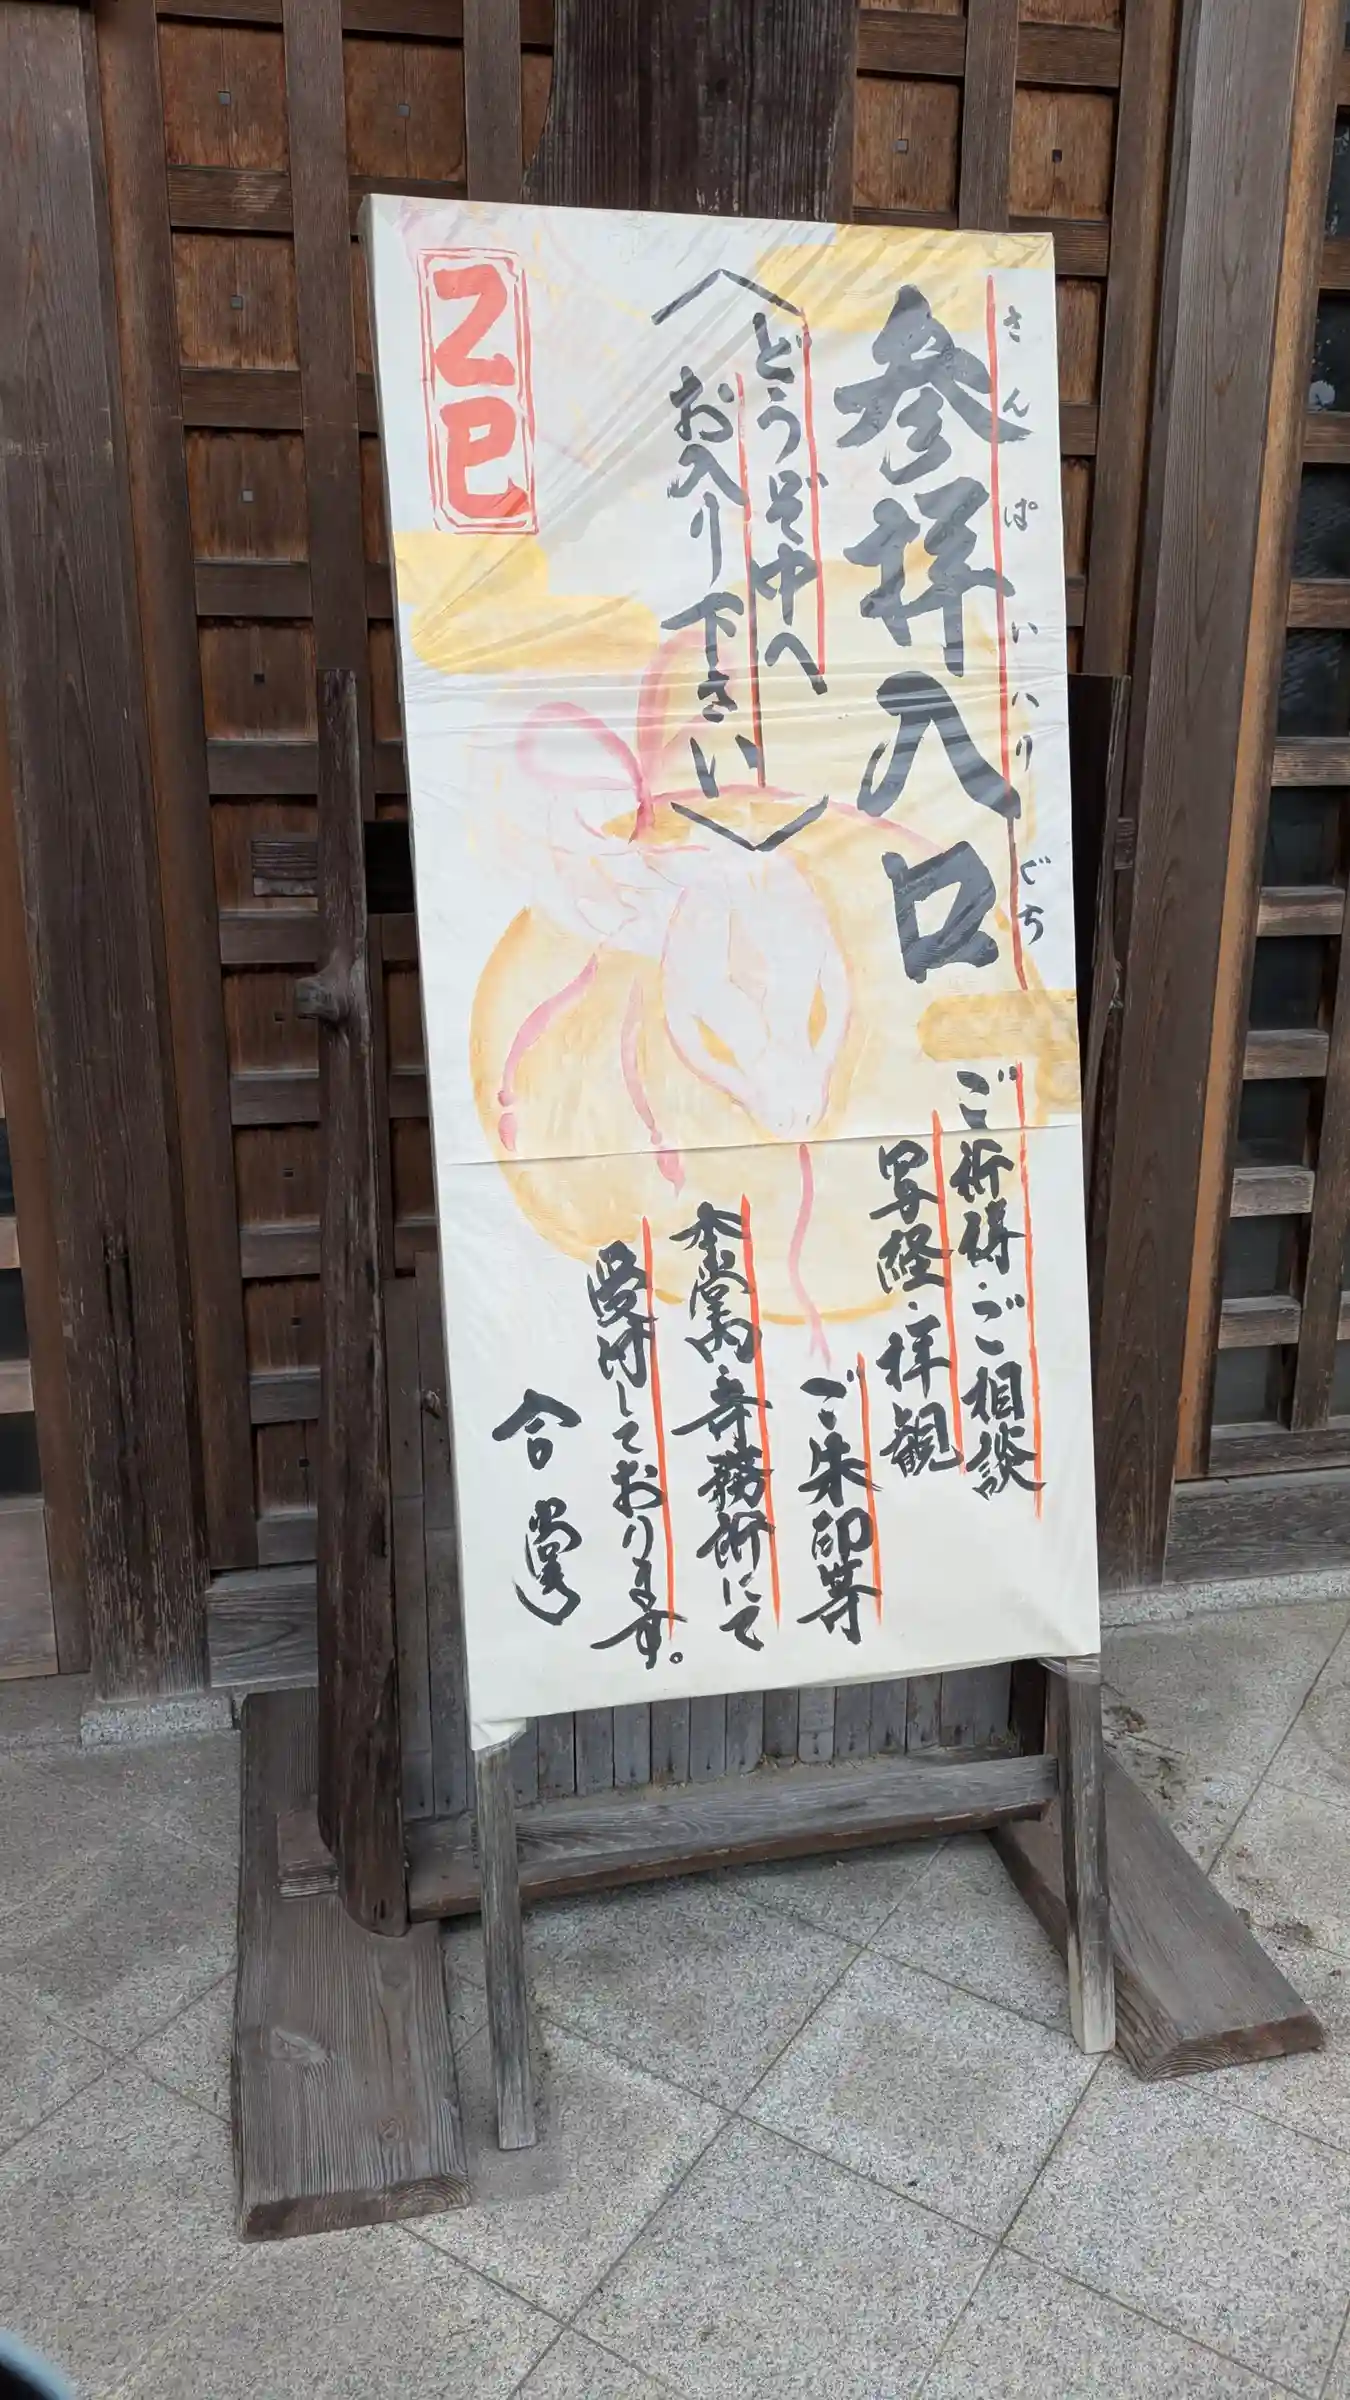 さんぱいいりぐち
参拝入口
どうぞ中へ
お入り下さい
乙巳
ご祈祷・ご相談
写経・拝観
ご朱印等
本堂内・寺務所にて
受付しております。
合掌